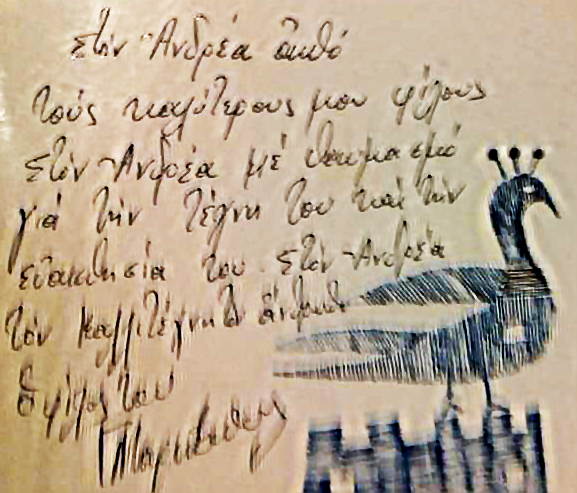 Στόν Ἀνδρέα ἀπό
τούς καλύτερους μου φίλους
Στόν Ἀνδρέα μέ θαυμασμό
γιά τήν τέχνη του καί τήν
εὐαισθησία του. Στόν Ἀνδρέα
τόν καλλιτέχνη
ὁ φίλος του